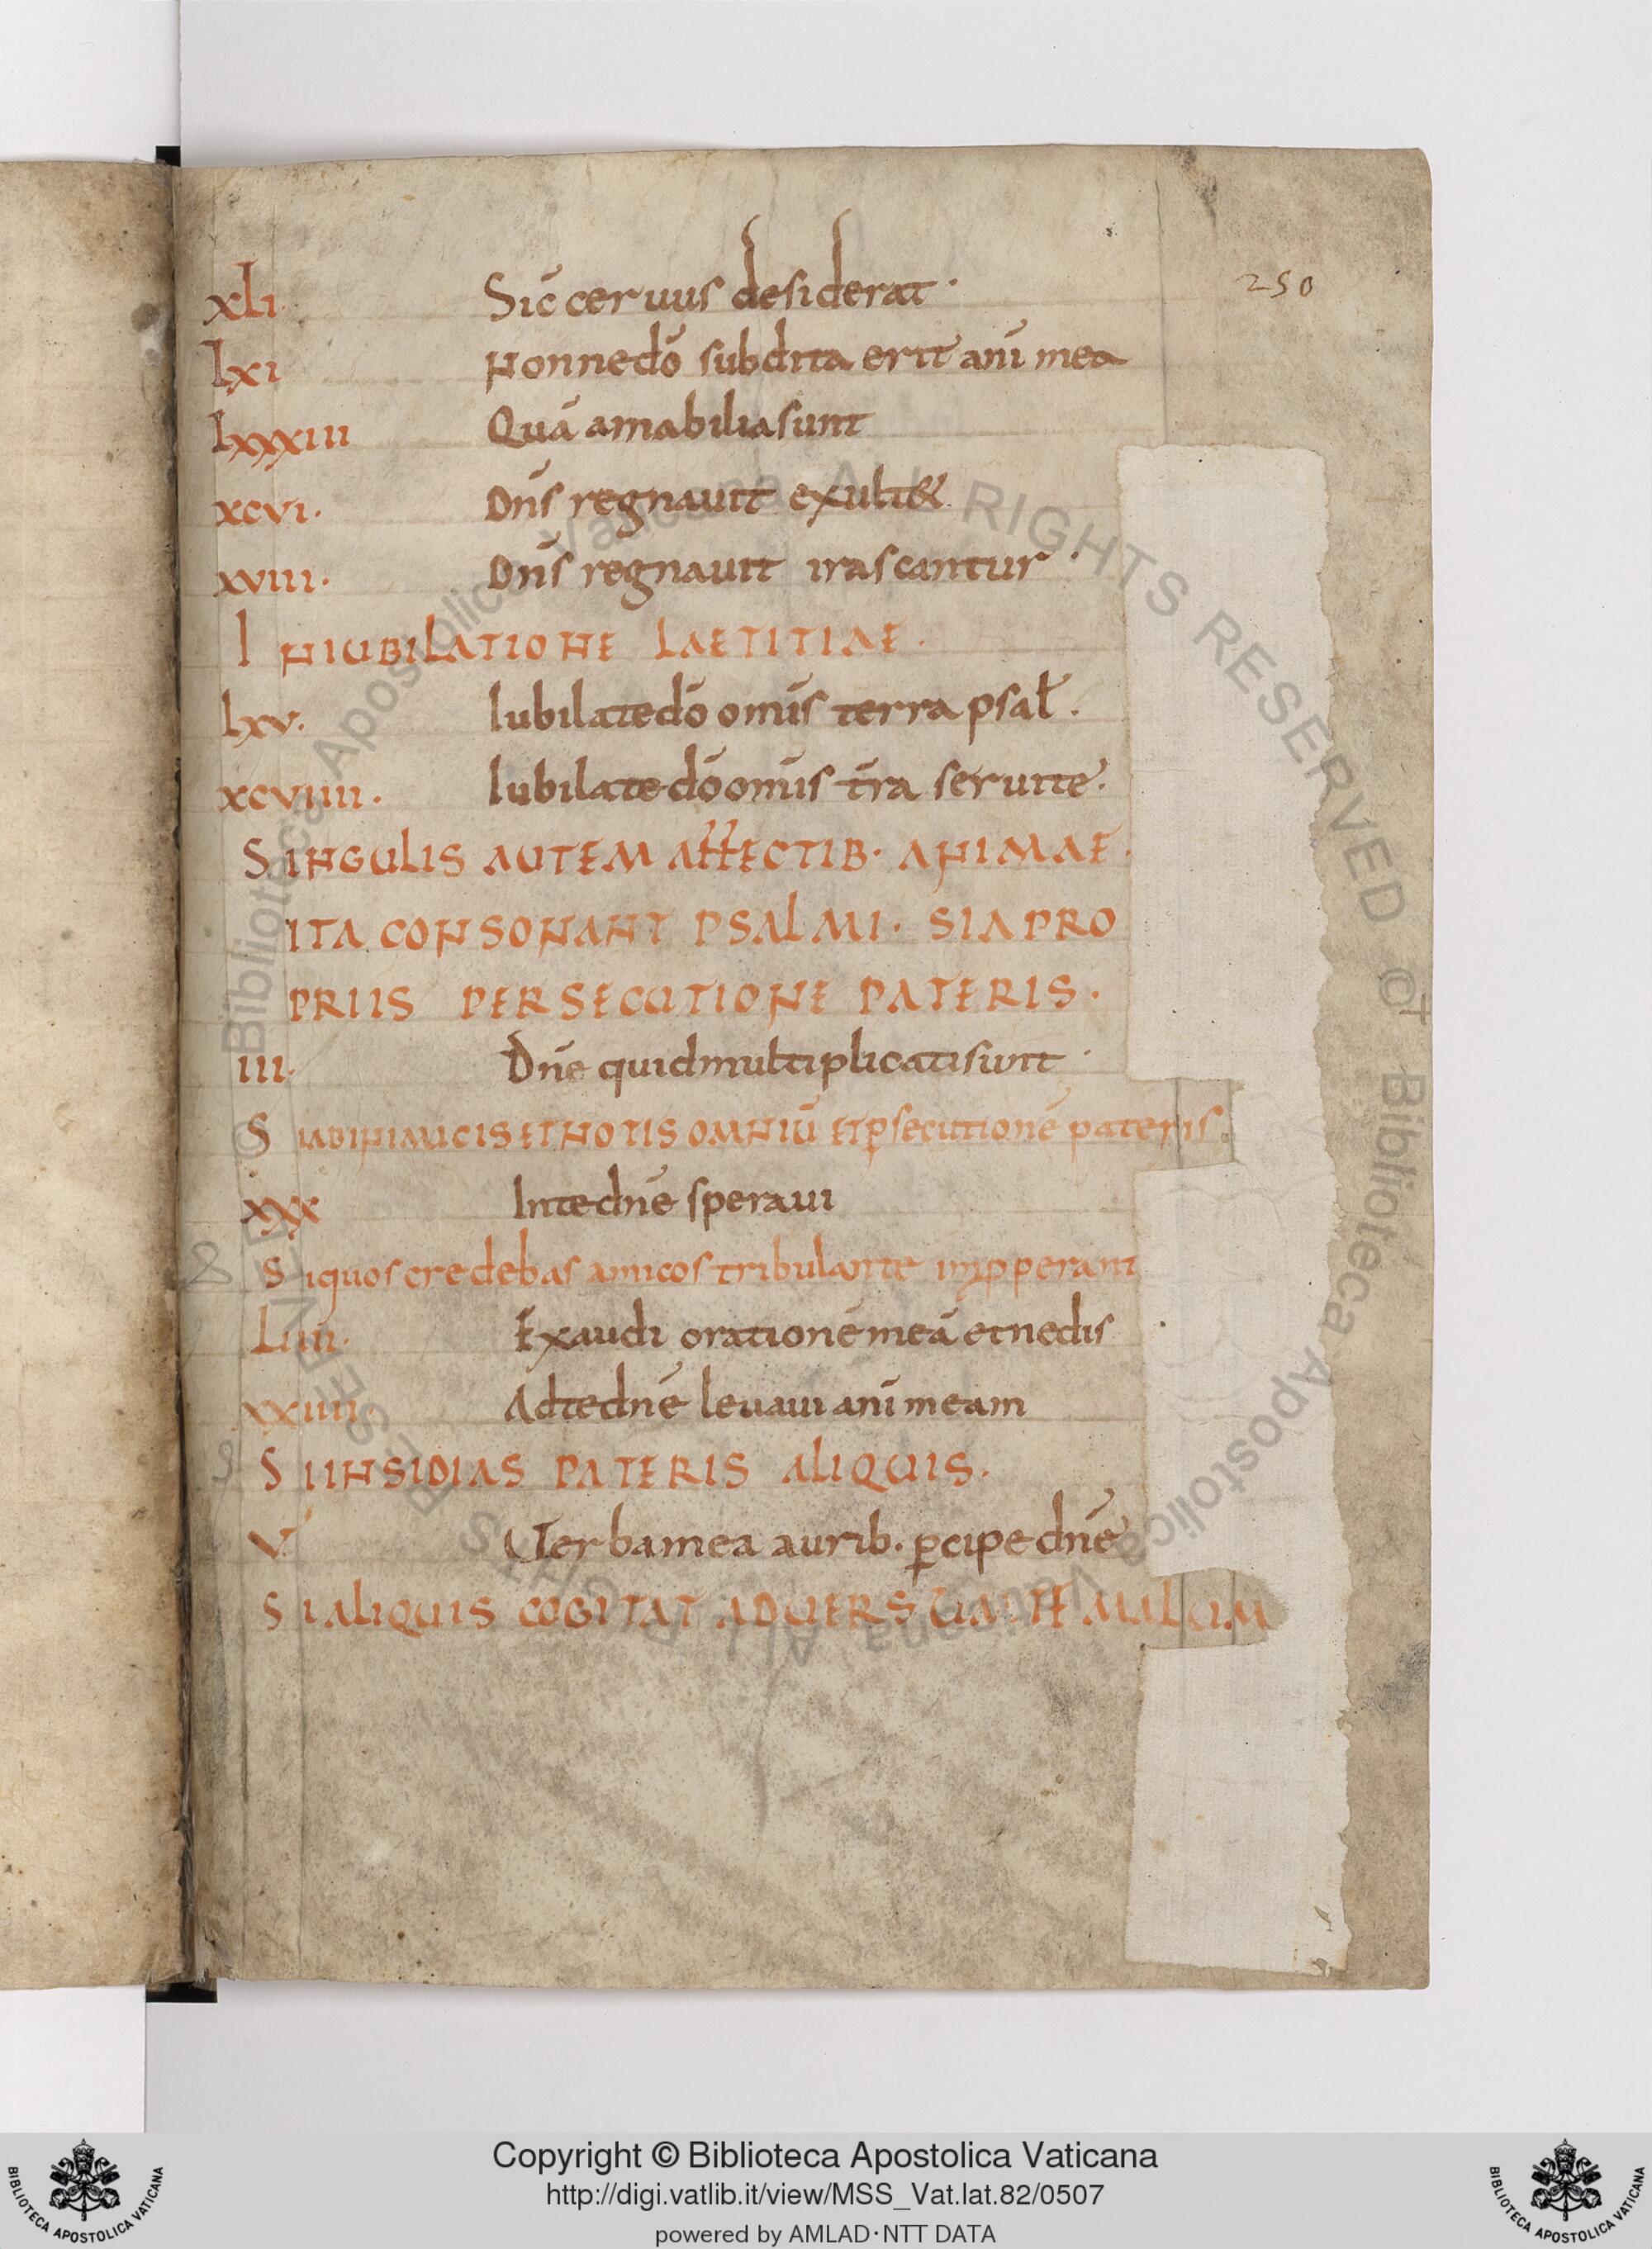 250
xli. Sic̄ ceruus desiderat.
lxi Nonne dō subdita erit anī mea
lxxxiii Quā amabilia sunt
xcvi. Dn̄s regnauit exult&
xviii. Dn̄s regnauit irascantur
IN IUBILATIONE LAETITIAE.
lxv. Iubilate dō omīs terra psal̄.
xcviiii. Iubilate dō omīs t̄ra seruite.
SINGULIS AUTEM AFFECTIB· ANIMAE.
ITA CONSONANT PSALMI. SI A PRO
PRIIS PERSECUTIONE PATERIS.
iii. Dn̄e quid multiplicati sunt.
SI AB INIMICIS ET NOTIS OMNIŪ ET p̱secutionē pateris.
xxx In te dn̄e speraui
Si quos credebas amicos tribulante
Liiii. Exaudi orationē meā et ne dis
xxiiii. Ad te dn̄e leuaui anī meam
SI INSIDIAS PATERIS ALIQUIS.
v. Uerba mea aurib. p̱cipe dn̄e
SI ALIQUIS COGITAT ADUERS MALUM
© Biblioteca Apostolica Vaticana ALL RIGHTS RESERVED © Biblioteca Apostolica Vaticana ALL RIGHTS RESERVED
Copyright © Biblioteca Apostolica Vaticana
http://digi.vatlib.it/view/MSS_Vat.lat.82/0507
powered by AMLAD·NTT DATA
BIBLIOTECA APOSTOLICA VATICANA
BIBLIOTECA APOSTOLICA VATICANA